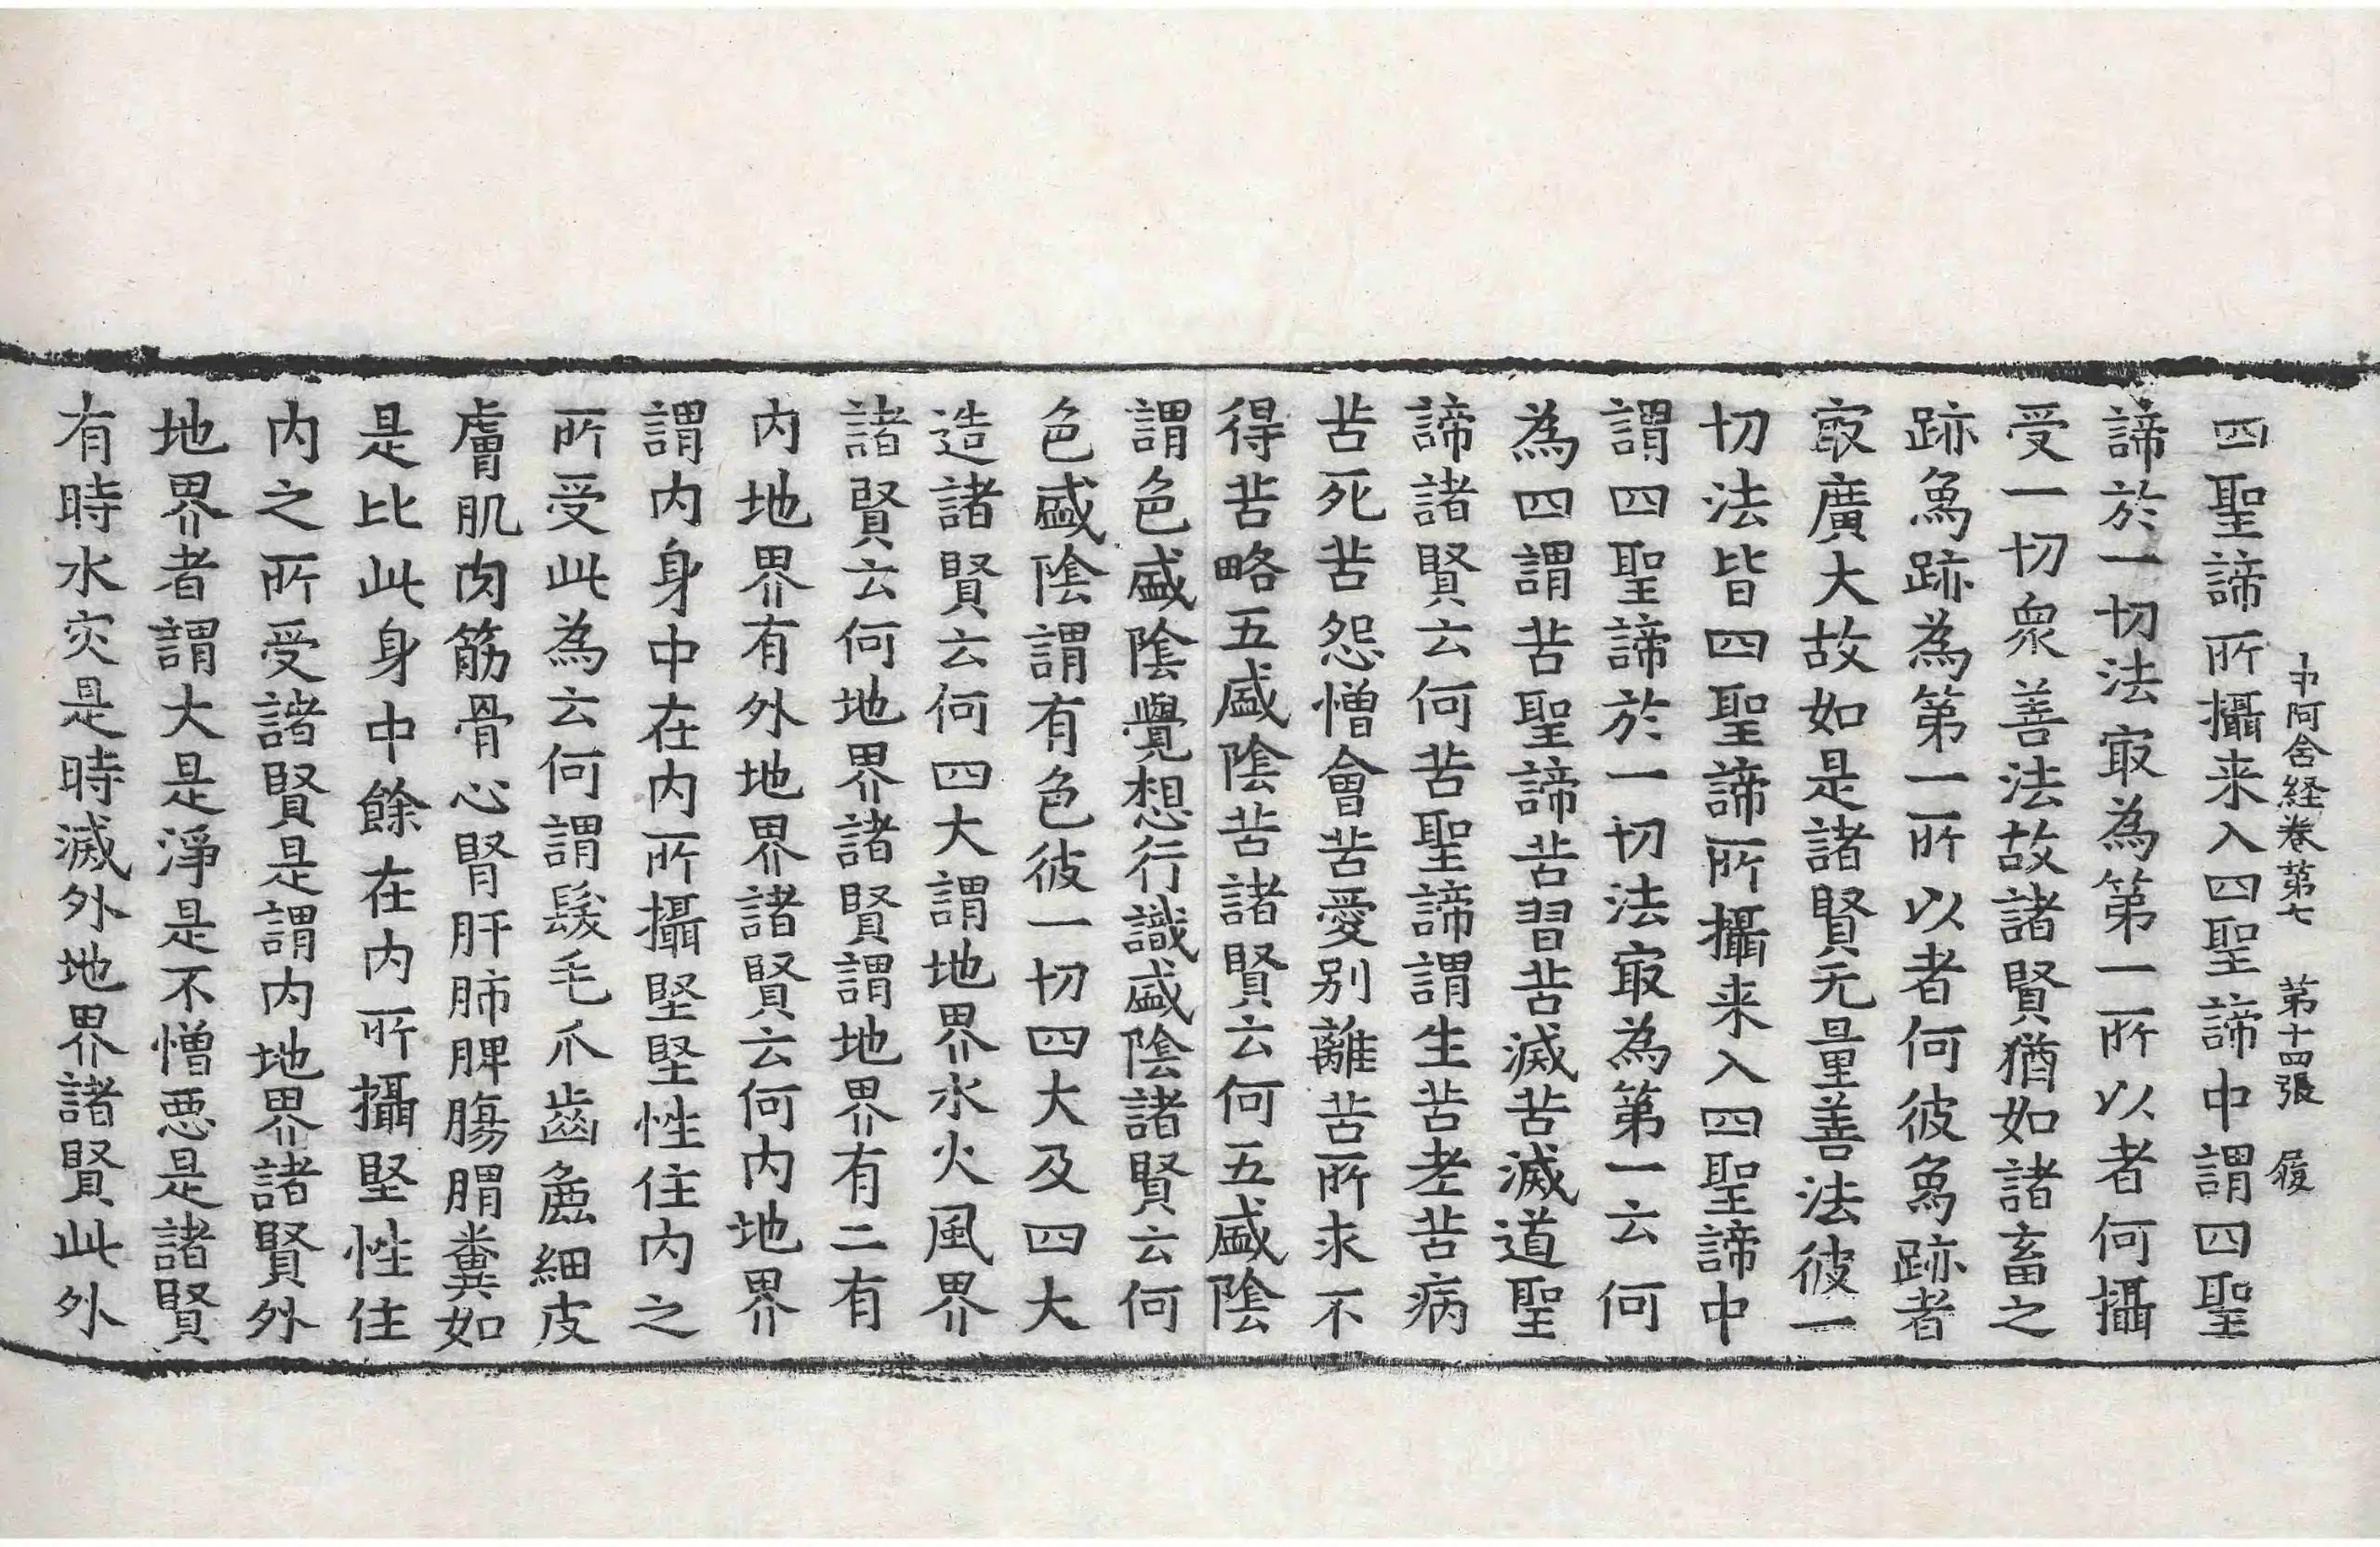 中阿舍経卷第七 第十四張 履
四聖諦所攝来入四聖諦中謂四聖
諦於一切法㝡為第一所以者何攝
受一切衆善法故諸賢猶如諸畜之
跡象跡為第一所以者何彼象跡者
㝡廣大故如是諸賢无量善法彼一
切法皆四聖諦所攝来入四聖諦中
謂四聖諦於一切法㝡為第一云何
為四謂苦聖諦苦習苦滅苦滅道聖
諦諸賢云何苦聖諦謂生苦老苦病
苦死苦怨憎會苦愛别離苦所求不
得苦略五盛陰苦諸賢云何五盛陰
謂色盛陰覺想行識盛陰諸賢云何
色盛陰謂有色彼一切四大及四大
造諸賢云何四大謂地界水火風界
諸賢云何地界諸賢謂地界有二有
内地界有外地界諸賢云何内地界
謂内身中在内所攝堅堅性住内之
所受此為云何謂髮毛爪齒麁細皮
膚肌肉筋骨心腎肝肺脾膓胃糞如
是比此身中餘在内所攝堅性住
内之所受諸賢是謂内地界諸賢外
地界者謂大是淨是不憎惡是諸賢
有時水灾是時滅外地界諸賢此外